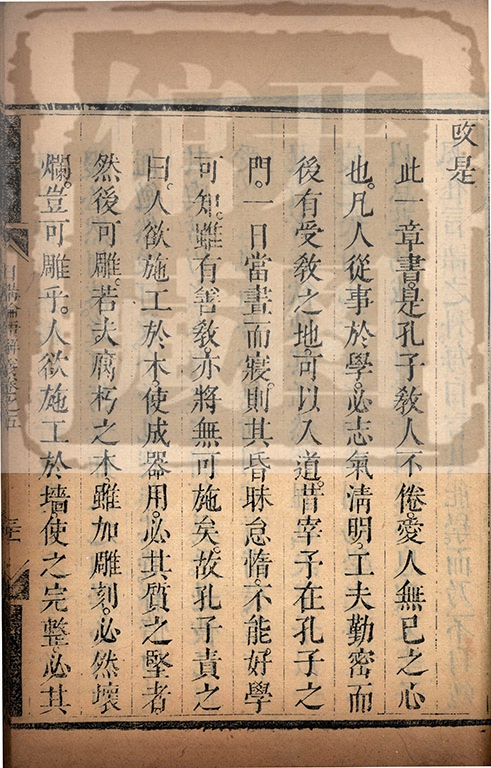 改是
此一章書。是孔子敎人不倦。愛人無已之心
也。凡人從事於學。必志氣淸明。工夫勤密。而
後有受敎之地。可以入道。昔宰子在孔子之
門。一日當晝而寢。則其昏昧怠惰。不能好學
可知。雖有善敎。亦將無可施矣。故孔子責之
曰。人欲施工於木。使成器用。必其質之堅者。
然後可雕。若夫腐朽之木。雖加雕刻。必然壞
爛。豈可雕乎。人欲施工於墻。使之完整。必其
日講四書解義卷之五